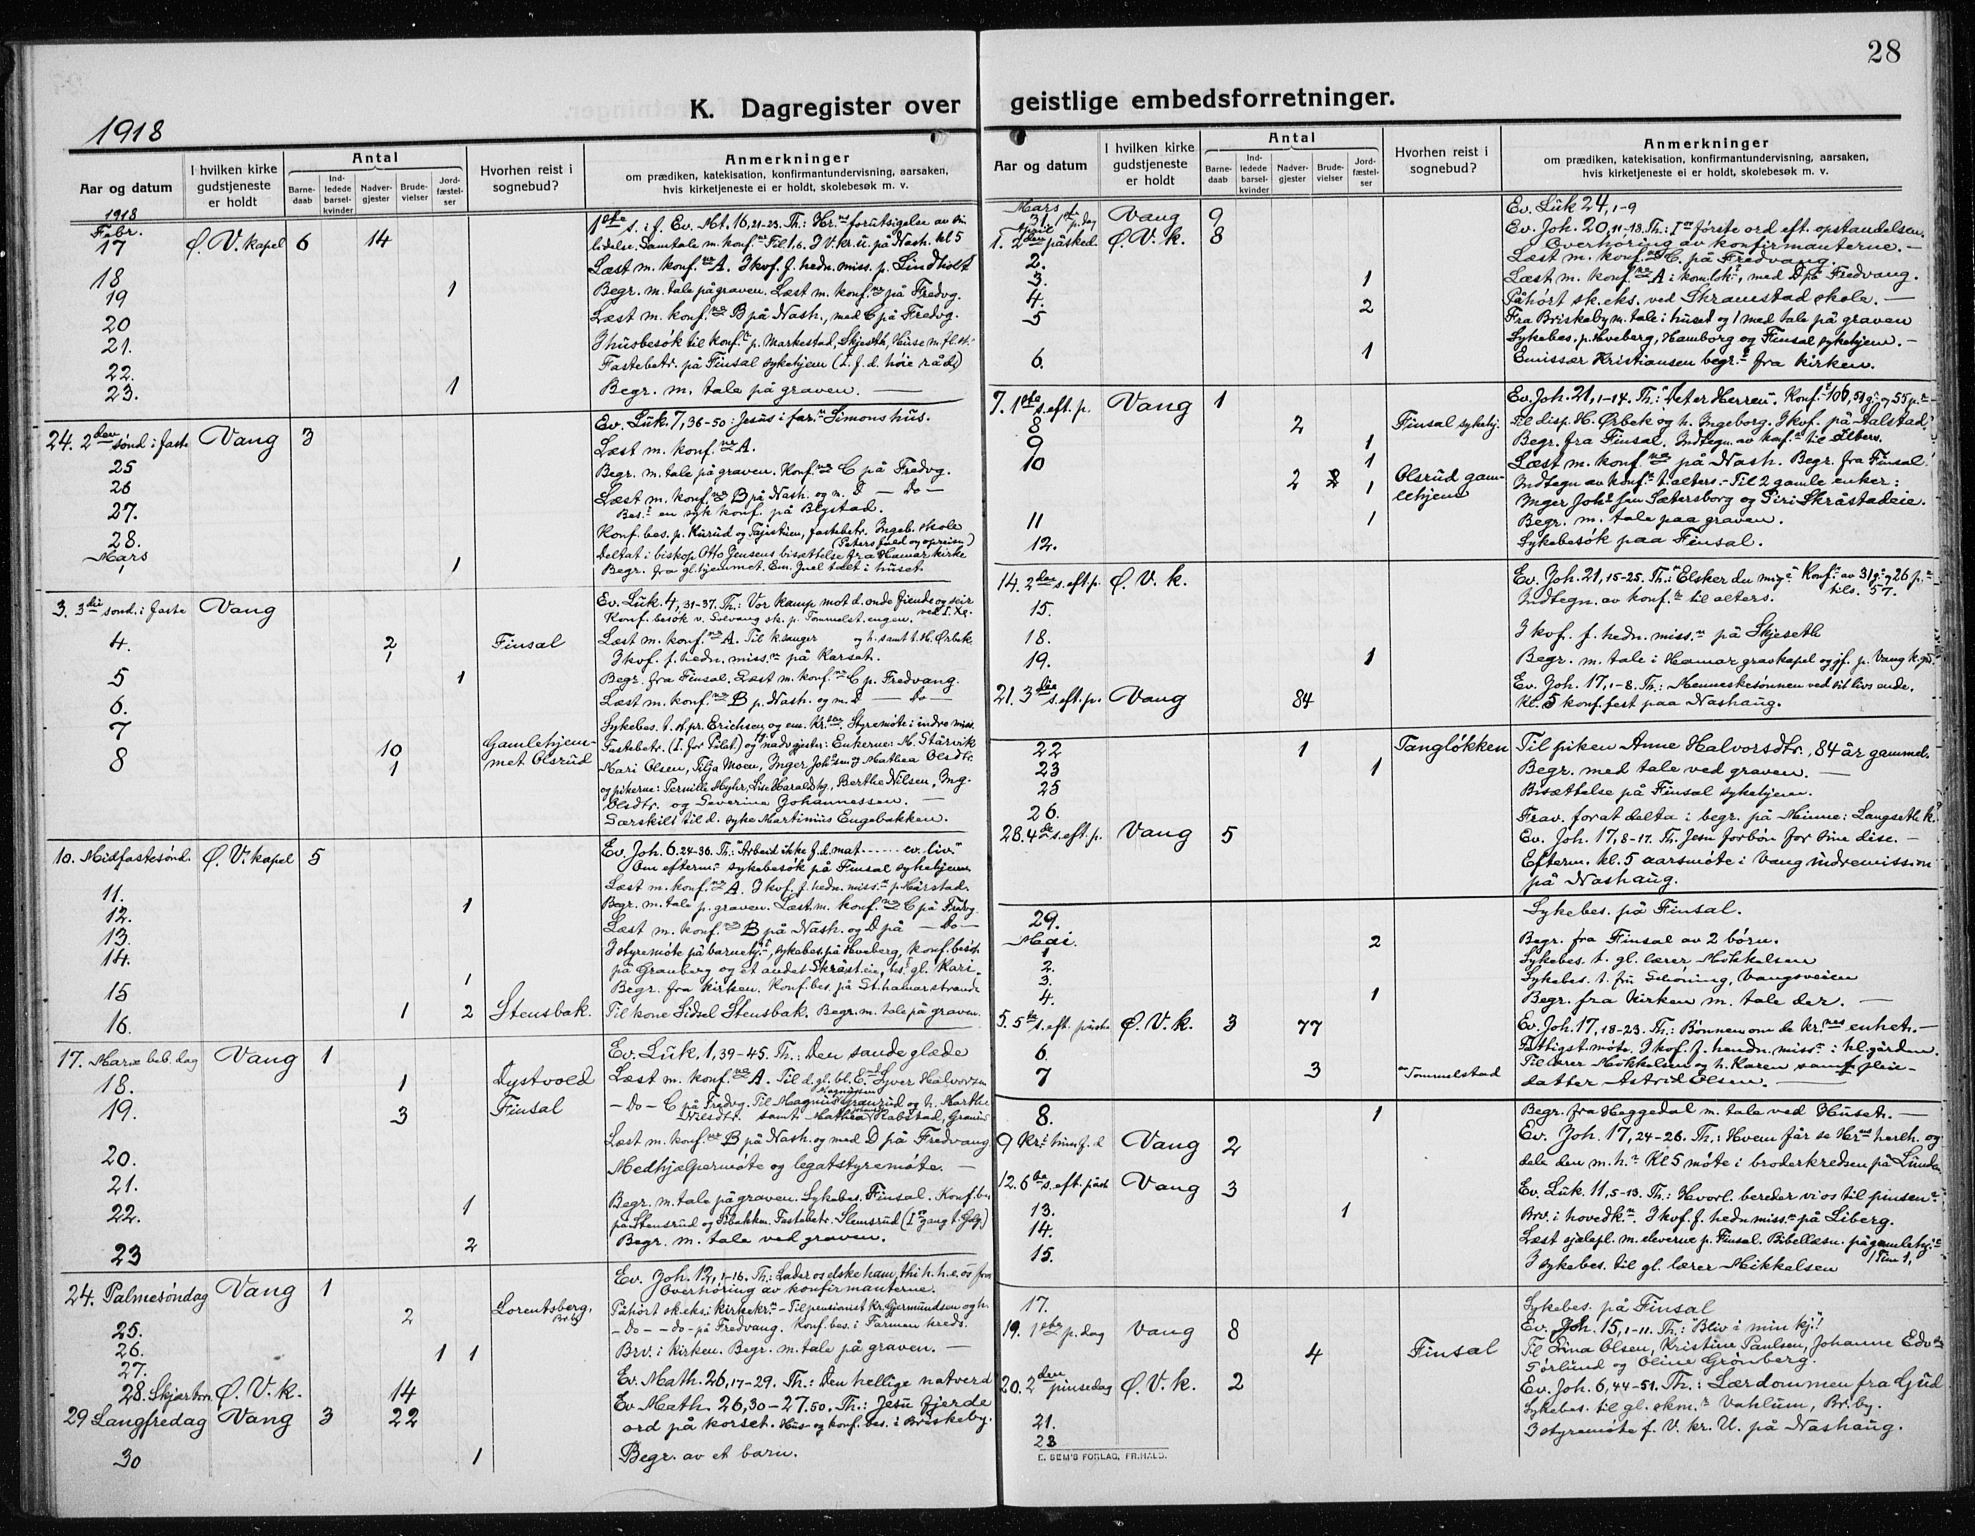 28
K. Dagregister over geistlige embedsforretninger.
1918
Aar og datum
I hvilken kirke gudstjeneste er holdt
Antal
Barnedaab
Indledede barselkvinder
Nadvergjester
Brudevielser
Jordfæstelser
Hvorhen reist i sognebud?
Anmerkninger
om prædiken, katekisation, konfirmantundervisning, aarsaken,
hvis kirketjeneste ei er holdt, skolebesøk m. v.
1918
Febr.
17 Ø. V. kapel 6 14 1ste s. i f. Ev. Mt. 16, 21-23. Th: Hr.ns forutsigelse av sin
lidelse. Samtale m. konf.ne Til 1,6. I V. kr. u. på Nash. kl 5
18 Læst m. konf.ne A. I kvf. f. hedn. miss. p. Lindholt
19 1 Begr. m. tale på graven. Læst m. konf.ne på Fredvg.
20 Læst m. konf.ne B på Nash., med C på Fredvg.
21. I husbesøk til konf. p. Markestad, Skjeseth, Huse m. fl. st.
22. Fastebetr. på Finsal sykehjem (I. f. d. høie råd)
23. 1 Begr. m. tale på graven.
24. 2den sønd. i faste Vang 3 Ev. Luk. 7, 36-50: Jesus i far. Simons hus.
25 Læst m. konf.ne A.
26 Begr. m. tale på graven. Konf.ne C på Fredvg.
27. Læst m. konf.ne B på Nash. og m. D - Do -
Bes. en syk konf. på Bystad.
28. Konf. bes. p. Kurud og, fastebetr. Ingeb. skole
(Peters fald og opreisn.)
Mars
1 Deltat i biskop Otto Jensens bisættelse fra Hamar kirke
1 Begr. fra gl. hjemmet. Em. Juel talt i huset.
3. 3die sønd. i faste Vang Ev. Luk. 4, 31-37. Th: Vor kamp mot d. onde fiende og seir
ved I. Xr.
Konf. besøk v. Solvang sk. p. Tommelst. engen.
4. 2 1 Finsal Læst m. konf.ne A. Til k. sanger og h. samt t. H. Ørbek
I kvf. f. hedn. miss.n på Karset.
5 1 Begr. fra Finsal. Læst m. konf.ne C p. Fredvang.
6. Læst m. konf.ne B p. Nash. og m. D - Do -
7 Sykebes. t. st. pr. Erichsen og em. Kr. Styremøte i indre miss.
8 10 1 Gamlehjemmet Olsrud Fastebetr. (I. for Pilat.) og nadvgjester: Enkerne: M. Størvik
Mari Olsen, Tilja Moen, Inger Johsen og Mathea Olsdtr.
og pikerne: Pernille Myhr, Lise Haraldbg, Berthe Nilsen, Ing.
Olsdtr. og Severine Johannessen.
Særskilt til d. syke Martinius Engebakken.
10. Midfastesønd. Ø. V. kapel 5 Ev. Joh. 6. 24-36. Th: "Arbeid ikke f. d. mat ...... ev. liv"
Om efterm. sykebesøk på Finsal sykehjem
11. Læst m. konf.ne A. I kvf. f. hedn. miss.n p. Hårstad.
12. 1 Begr. m. tale p. graven. Læst m. konf.ne C på Fredvg.
13. Læst m. konf.ne B på Nash. og D på - Do -
14. I styremøte på barnehj., sykebes. på Hveberg, konf. besøk
på Granberg og et andet Skråsteie, bes. gl. Kari.
15 1 Begr. fra kirken. Konf. bes. på St. hamar strande
16. 1 2 Stensbak. Til kone Sidsel Stensbak. Begr. m. tale på graven.
17. Mariæ beb. dag Vang 1 Ev. Luk. 1, 39-45. Th: Den sande glæde
18. 1 Dystvold Læst m. konf.ne A. Til d. gl. bl. E. Syver Halvorsen
19. 3 Finsal - Do - C på Fredvg. Til Magnus Granrud og h. Marthe
Nilsdtr. samt Mathea Rabstad,
20. Læst m. konf.ne B på Nash. og med D på Fredvang
21. Medhjælpermøte og legatstyremøte.
22. 1 Begr. m. tale på graven. Sykebes. Finsal. Konf. bes.
på Stensrud og Sibakken. Fastebetr. Slemsrud (I gang t. Golg.)
23 2 Begr. m. tale ved graven.
24. Palmesøndag Vang 1 Ev. Joh. 12, 1-16. Th: Lader os elske ham, thi h. h. e. os først
Overhøring av konfirmanterne.
25. 2 Lorentsberg, Br.by Påhørt sk. eks. i kirkekr. - Til pensionist Kr. Gjermundsen og h.
26. - Do - - do - på Fredvang. Konf. bes. i Farmen kreds.
27. 1 1 Brv. i kirken. Begr. m. tale på graven.
28. Skjærtors. Ø. V. k. 14 Ev. Math. 26, 17-29. Th: Den hellige natverd
29 Langfredag Vang 3 22 Ev. Math. 26, 30 - 27. 50. Th: Jesu fjerde
ord på korset. Hus- og konf. bes. i Briskeby.
30 1 Begr. av et barn.
Aar og datum
I hvilken kirke gudstjeneste er holdt
Antal
Barnedaab
Indledede barselkvinder
Nadvergjester
Brudevielser
Jordfæstelser
Hvorhen reist i sognebud?
Anmerkninger
om prædiken, katekisation, konfirmantundervisning, aarsaken,
hvis kirketjeneste ei er holdt, skolebesøk m. v.
Mars
31. 1ste p. dag Vang 9 Ev. Luk 24, 1-9
April
1. 2den påsked. Ø. V. k. 8 Ev. Joh. 20, 11-18. Th: I første ord eft. opstandelsen.
Overhøring av konfirmanterne. -
2. Læst m. konf.ne C. på Fredvang.
3. 1 Læst m. konf.ne A i kom.lok., med D på Fredvang.
4. Påhørt sk. eks. ved Skramstad skole. -
5 2 Fra Briskeby m. tale i huset og 1 med tale på graven
Sykebes. p. Hveberg, Hamborg og Finsal sykehjem. -
6. 1 Emissær Kristiansen begr. fra kirken.
7. 1ste s. eft. p. Vang 1 Ev. Joh. 21, 1-14. Th: "Det er Herren". Konf. 106, 51 g. og 55 p.
8 2 Finsal sykehj. Til disp. H. Ørbek og h. Ingeborg. I kvf. på Salstad
9 1 Begr. fra Finsal. Indtegn. av konf. til alters.
10 1 Læst m. konf.ne på Nash. Begr. fra Finsal.
2 1 Olsrud gamlehjem Indtegn av konf. t. alters. - Til 2 gamle enker:
Inger Joh. Sætersborg og Siri Skråstadeie.
11 1 Begr. m. tale paa graven.
12. Sykebesøk paa Finsal.
14. 2den s. eft. p. Ø. V. k. Ev. Joh. 21, 15-25. Th: "Elsker du mig" Konf. av 31 g. og 26 p.
tils. 57.
15. Indtegn. av konf. til alters.
18. I kvf. f. hedn. miss.n på Skjeseth
19. 1 Begr. m. tale i Hamar gravkapel og jf. p. Vang k. gd.
21. 3die s. eft. p. Vang 84 Ev. Joh. 17, 1-8. Th: Menneskesønnen ved sit livs ende.
Kl. 5 konf. fest paa Nashaug.
22 1 Tangløkken Til piken Anne Halvorsdtr., 84 år gammel.
23 1 Begr. med tale ved graven. -
25 Bisættelse på Finsal sykehjem.
26. Frav. for at delta i begr. på Minne: Langseth k.
28. 4de s. eft. p. Vang 5 Ev. Joh. 17, 8-17. Th: Jesu forbøn for sine disc. -
Efterm. kl. 5 aarsmøte i Vang indremission
på Nashaug.
29. Sykebes. på Finsal.
Mai.
1 2 Begr. fra Finsal av 2 børn.
2. Sykebes. t. gl. lærer Mikkelsen
3. Sykebes. t. fru Schøning, Vangsveien
4. 1 Begr. fra kirken m. tale der. -
5. 5te s. eft. påske Ø. V. k. 3 77 Ev. Joh. 17, 18-23. Th: Bønnen om de kr.nes enhet. -
6. Fattigst. møte. I kvf. f. hendn. miss. i kl. gården.
7 3 Tommelstad Til lærer Mikkelsen og h. Karen samt pleie-
datter Astrid Olsen.
8. 1 Begr. fra Heggedal m. tale ved Huset. -
9 Kr. himmf. d Vang 2 Ev. Joh. 17, 24-26. Th: Hvem får se Hr.ns herlh. og
dele den m. h. Kl 5 møte i broderkredsen på Lunden
12. 6te s. eft. påsk Vang 3 Ev. Luk. 11, 5-13. Th: Hvorl. bereder vi os til pinsen
13. 1 Brv. i hovedk. I kvf. f. hedn. miss.n på Liberg.
14. Læst sjælepl. m. eleverne p. Finsal. Bibellæsn. på gamlehj.
1 Tim 1,
15. I sykebes. til gl. lærer Mikkelsen
17. Sykebes. på Finsal
19. 1ste p. dag Vang 8 Ev. Joh. 15, 1-11. Th: "Bliv i min kj.!
4 Finsal Til Lina Olsen, Kristine Paulsen, Johanne Edv.
Førlund og Oline Grønberg.
20. 2den pinsedag Ø. V. k. 2 Ev. Joh. 6, 44-51. Th: Lærdommen fra Gud
21. Sykebes. til gl. skm. Vahlum, Br.by.
23 I styremøte f. V. kr. U. på Nashaug.
E. SEM'S FORLAG, FR.HALD.